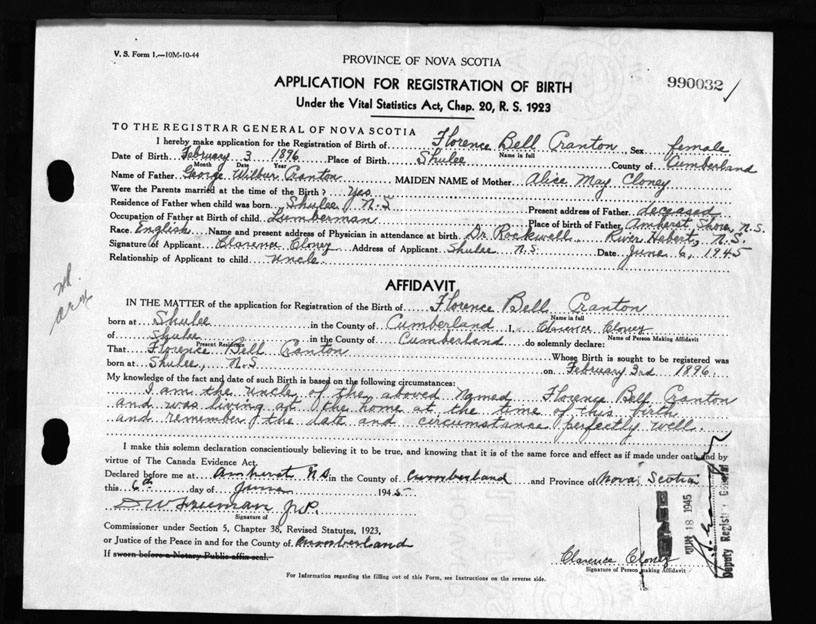 V. S. Form 1.—10M-10-44
PROVINCE OF NOVA SCOTIA
APPLICATION FOR REGISTRATION OF BIRTH
990032
Under the Vital Statistics Act, Chap. 20, R. S. 1923
TO THE REGISTRAR GENERAL OF NOVA SCOTIA
I hereby make application for the Registration of Birth of Florence Bell Cranton Sex female
Name in full
Date of Birth February 3 1896 Place of Birth Shulee County of Cumberland
Month Date Year
Name of Father George Wilbur Cranton MAIDEN NAME of Mother Alice May Cloney
Were the Parents married at the time of the Birth? Yes
Residence of Father when child was born Shulee, N.S Present address of Father deceased
Occupation of Father at Birth of child Lumberman Place of birth of Father Amherst Shore, N.S.
Race English Name and present address of Physician in attendance at birth Dr Rockwell River Hebert, N.S.
Signature of Applicant Clarence Cloney Address of Applicant Shulee N.S. Date June 6, 1945
Relationship of Applicant to child Uncle
AFFIDAVIT
IN THE MATTER of the application for Registration of the Birth of Florence Bell Cranton
Name in full
born at Shulee in the County of Cumberland I, Clarence Cloney
Name of Person Making Affidavit
of Shulee in the County of Cumberland do solemnly declare:
Present Residence
That Florence Bell Cranton Whose Birth is sought to be registered was
born at Shulee, N.S on February 3rd 1896
My knowledge of the fact and date of such Birth is based on the following circumstances:
I am the uncle of the aboved Named Florence Bell Cranton
and was living at the home at the time of this birth
and remember the date and circumstance perfectly well.
I make this solemn declaration conscientiously believing it to be true, and knowing that it is of the same force and effect as if made under oath and by
virtue of The Canada Evidence Act.
Declared before me at Amherst N.S. in the County of Cumberland and Province of Nova Scotia
this 6th day of June 1945
D W Freeman J.P.
Signature of
Commissioner under Section 5, Chapter 38, Revised Statutes, 1923,
or Justice of the Peace in and for the County of Cumberland
If sworn before a Notary Public affix seal.
Clarence Cloney
Signature of Person making Affidavit
JUN 18 1945
Deputy Registrar General
For Information regarding the filling out of this Form, see Instructions on the reverse side.